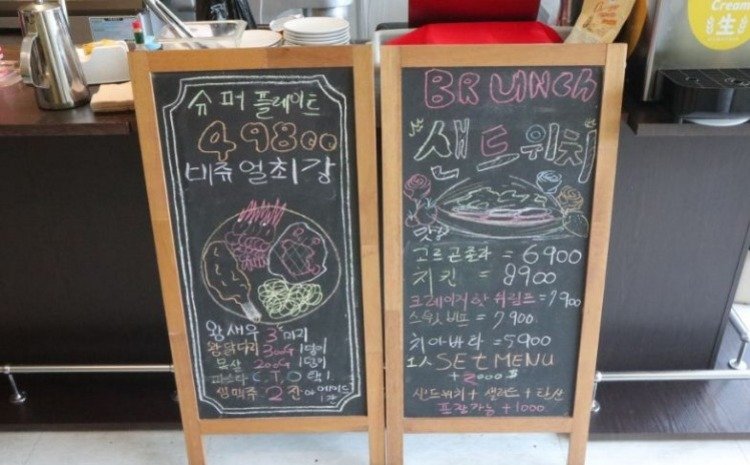 슈퍼플레이트
49800
비쥬얼최강
왕새우 3마리
왕닭다리 300G 1덩이
목살 200G 1덩이
파스타 C,T,O 택1
생맥주 2잔 or 에이드
BRUNCH
샌드위치
맛있
고르곤졸라 = 6900
치킨 = 8900
크레이지핫쉬림프 = 7900
스윗비프 = 7900
치아바타 = 5900
1人 SEt MENU
+ 2000
샌드위치 + 샐러드 + 탄산
포장가능 + 1000
Cream
生